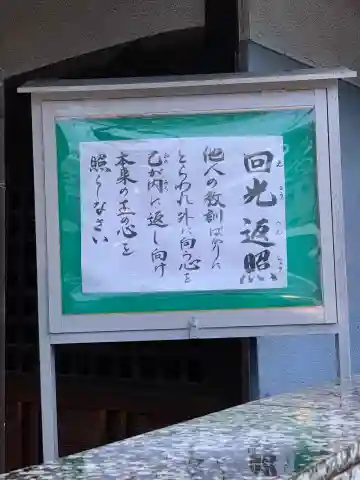 回光返照
え こう へん しょう
他人の教訓ばかりに
とらわれ外に向う心を
己が内に返し向け
本来の主の心を
照らしなさい